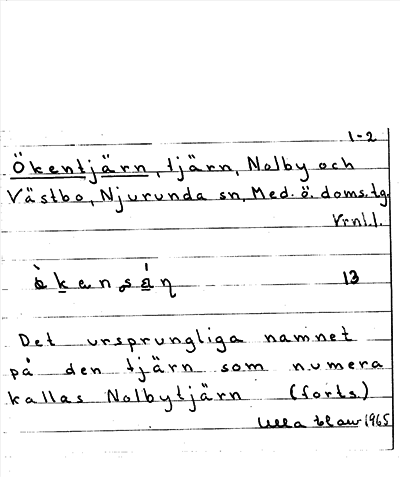 1-2
Ökentjärn, tjärn, Nolby och
Västbo, Njurunda sn, Med. ö. doms.tg.
Vrnl.l.
13
Det ursprungliga namnet
på den tjärn som numera
kallas Nolbytjärn (forts.)
Ulla 1965